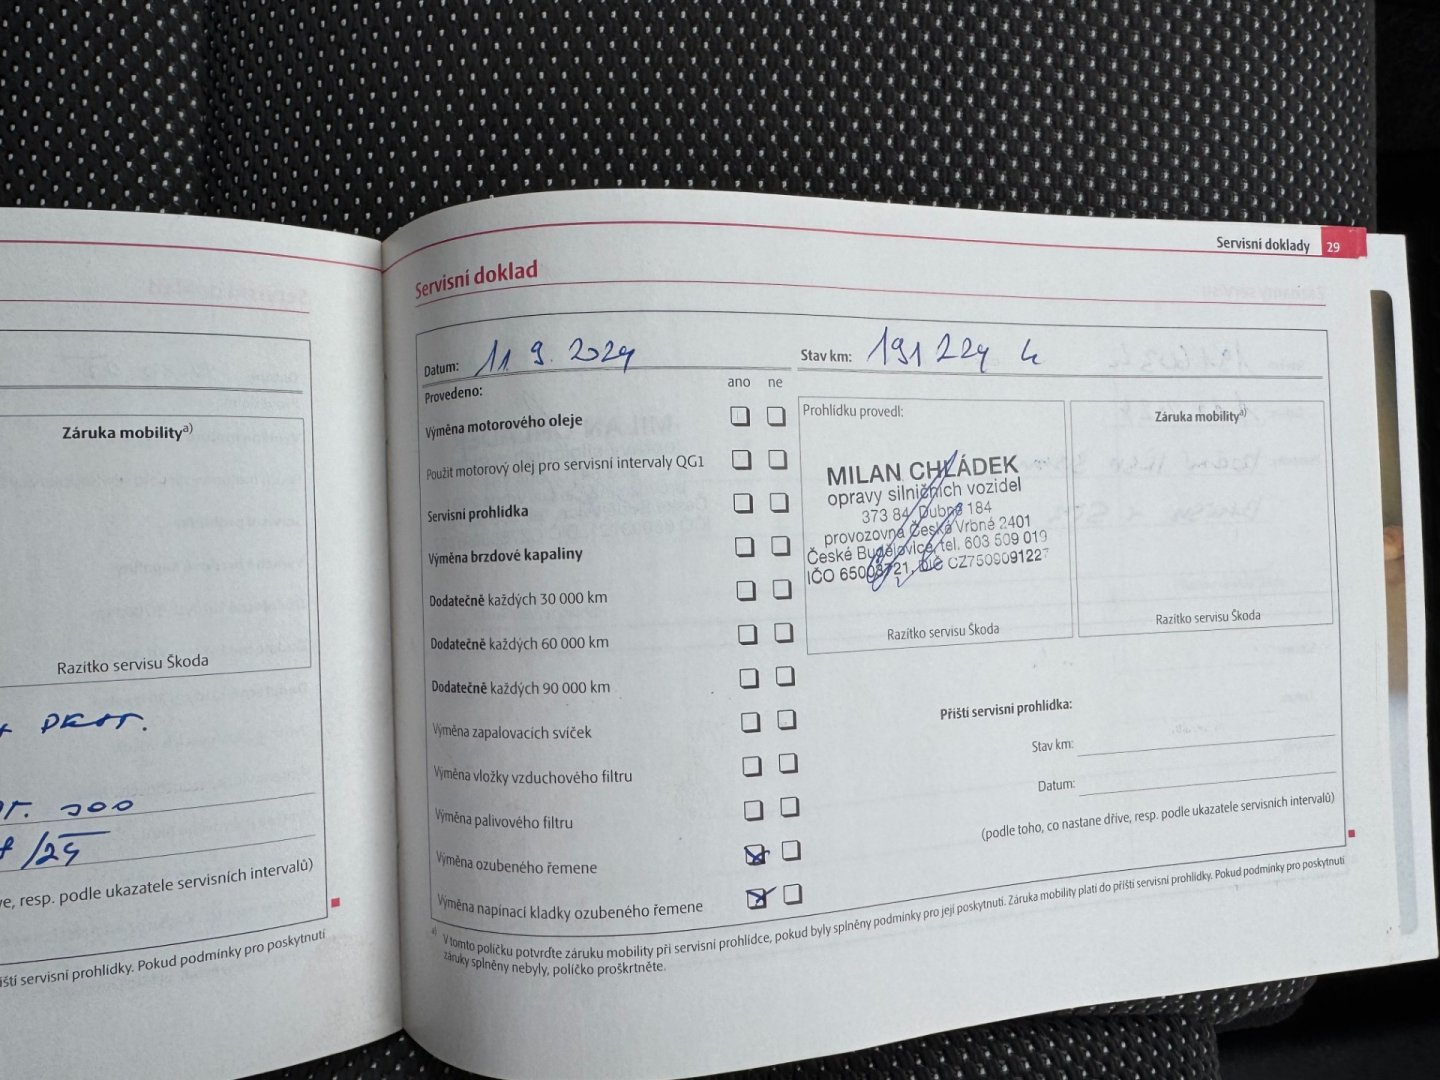 Záruka mobility a)
Razítko servisu Škoda
PRST.
300
/24
resp. podle ukazatele servisních intervalů)
servisní prohlídky. Pokud podmínky pro poskytnutí
Servisní doklady 29
Servisní doklad
Datum: 11. 9. 2024
Stav km: 191 224 k
Provedeno:
ano ne
Výměna motorového oleje
Použit motorový olej pro servisní intervaly QG1
Servisní prohlídka
Výměna brzdové kapaliny
Dodatečně každých 30 000 km
Dodatečně každých 60 000 km
Dodatečně každých 90 000 km
Výměna zapalovacích svíček
Výměna vložky vzduchového filtru
Výměna palivového filtru
Výměna ozubeného řemene
Výměna napínací kladky ozubeného řemene
Prohlídku provedl:
MILAN CHLÁDEK
opravy silničních vozidel
373 84 Dubné 184
provozovna České Vrbné 2401
České Budějovice, tel. 603 509 019
IČO 65008721, DIČ CZ7509091227
Razítko servisu Škoda
Záruka mobility a)
Razítko servisu Škoda
Příští servisní prohlídka:
Stav km:
Datum:
(podle toho, co nastane dříve, resp. podle ukazatele servisních intervalů)
a) V tomto políčku potvrďte záruku mobility při servisní prohlídce, pokud byly splněny podmínky pro její poskytnutí. Záruka mobility platí do příští servisní prohlídky. Pokud podmínky pro poskytnutí
záruky splněny nebyly, políčko proškrtněte.